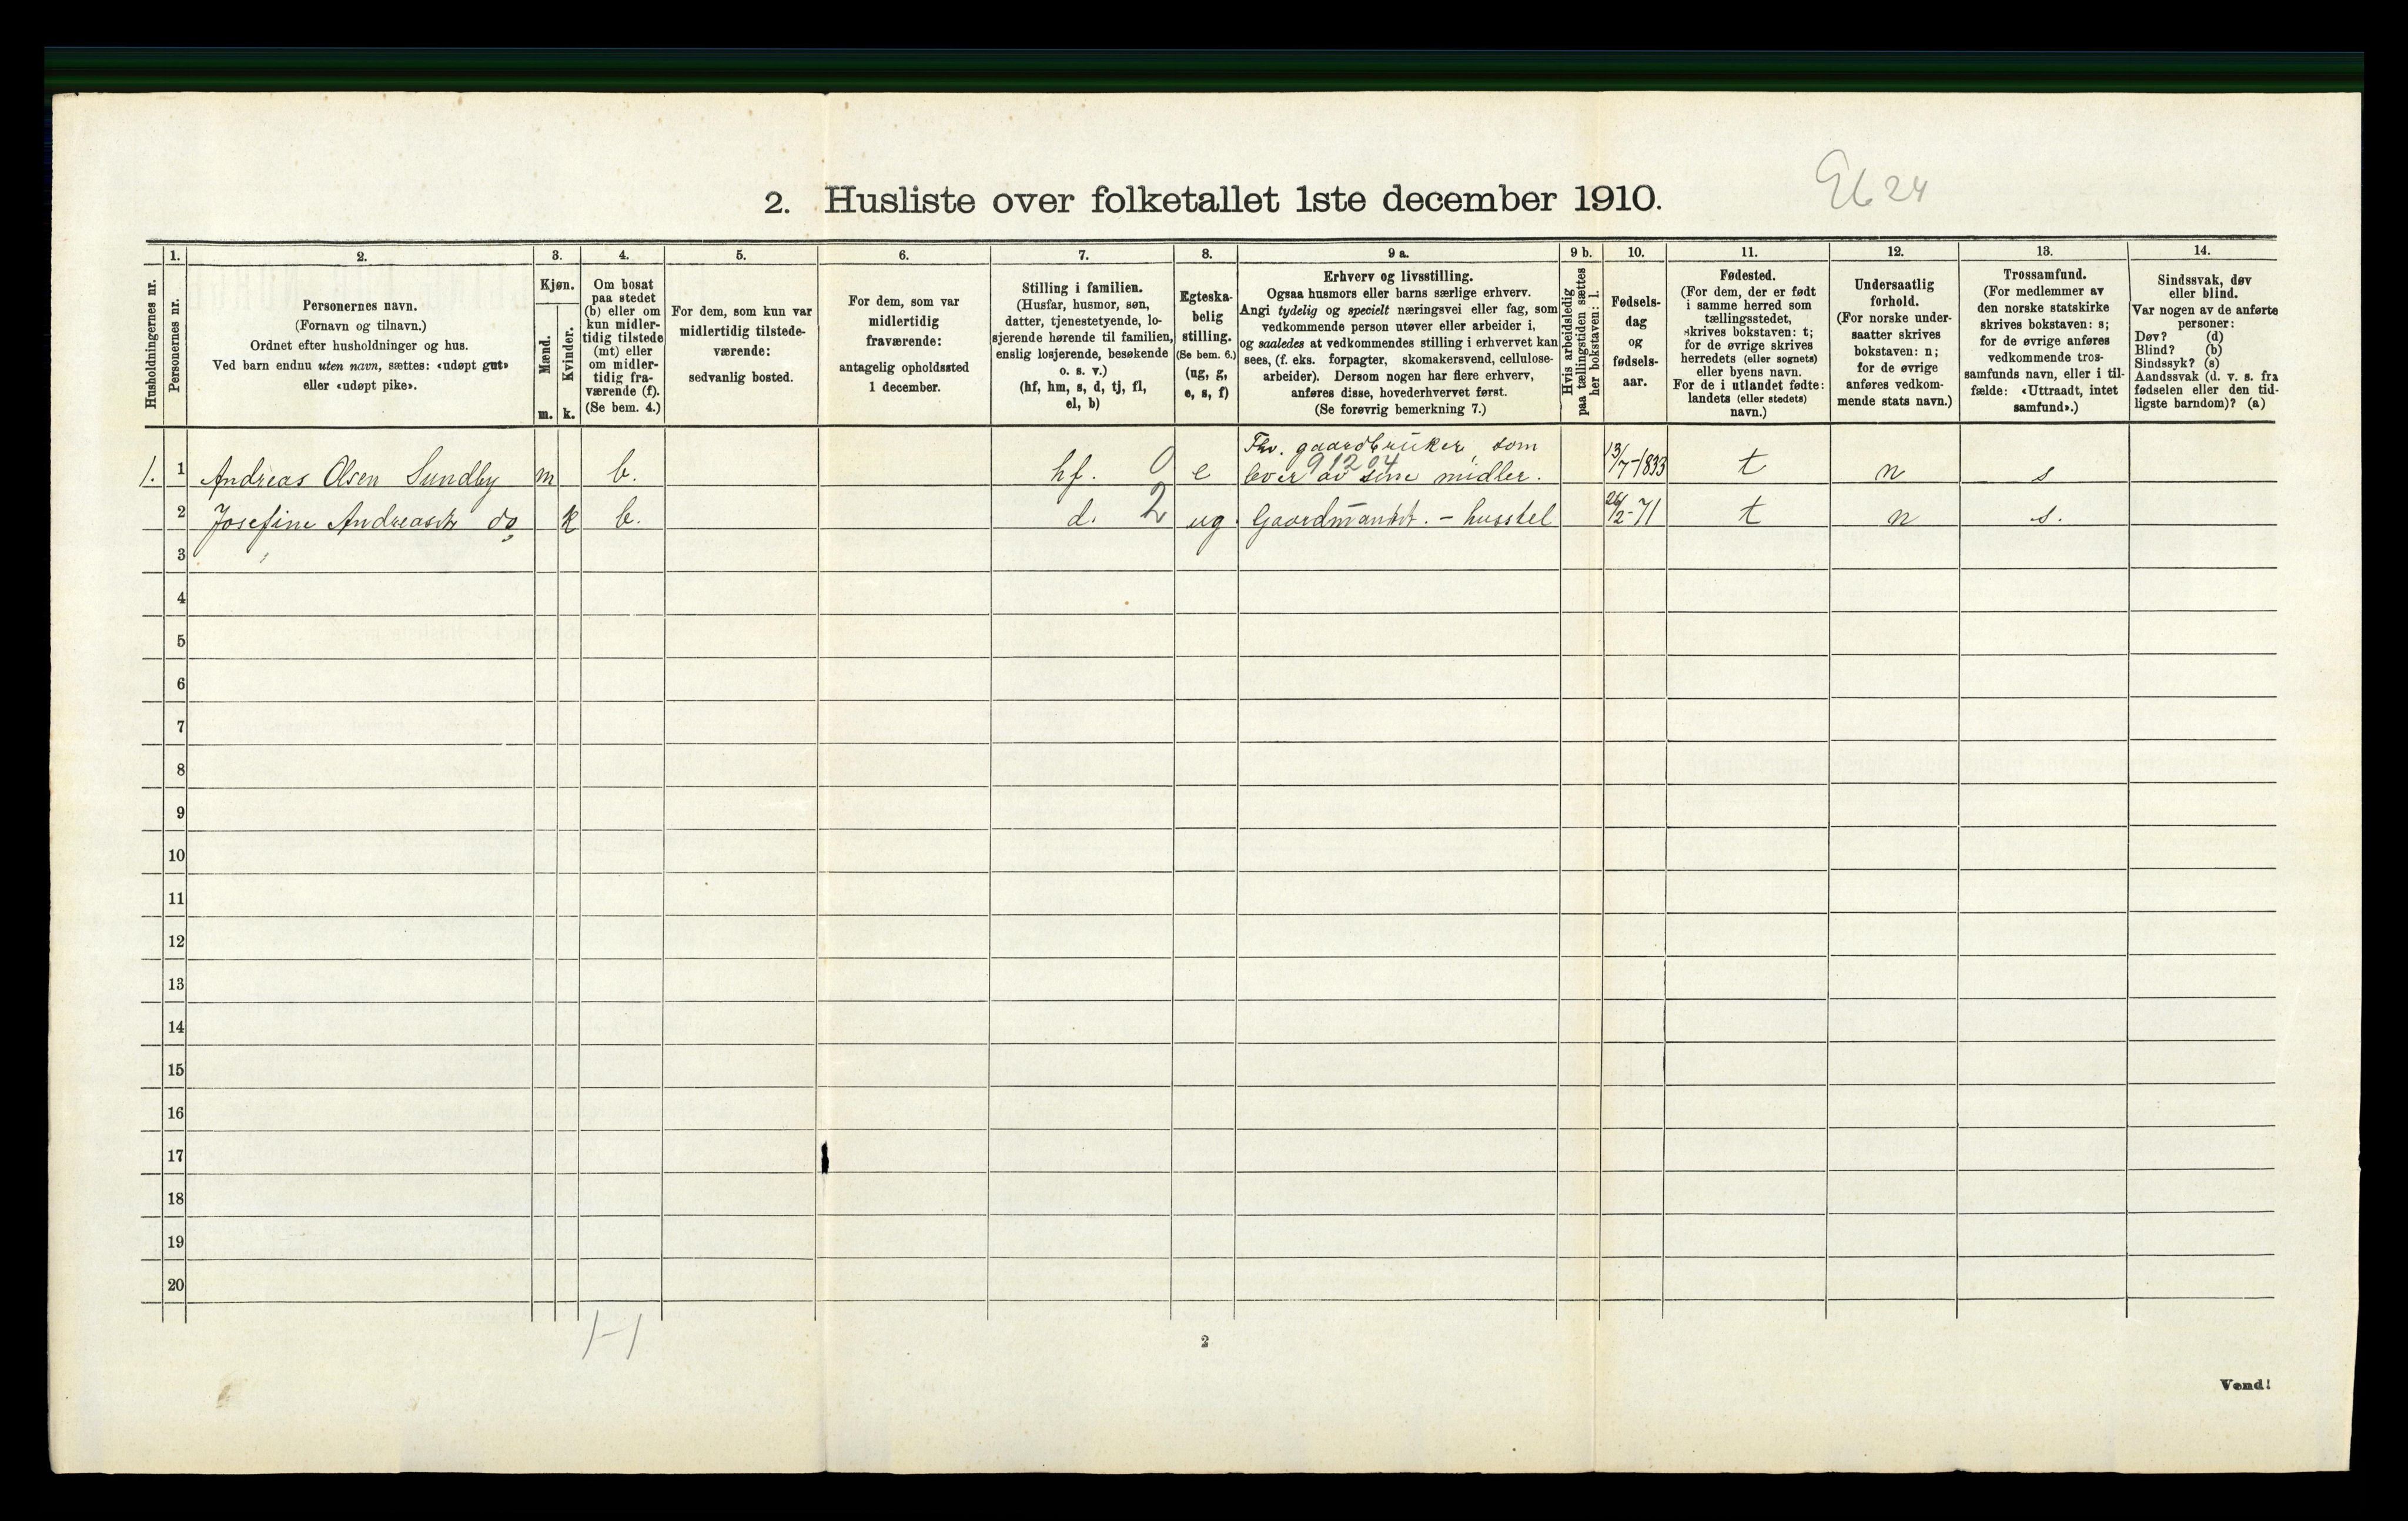 2. Husliste over folketallet 1ste december 1910.
24
1. 2. 3. 4. 5. 6. 7. 8. 9 a. 9 b. 10. 11. 12. 13. 14.
Husholdningernes nr.
Personernes nr.
Personernes navn.
(Fornavn og tilnavn.)
Ordnet efter husholdninger og hus.
Ved barn endnu uten navn, sættes: «udøpt gut»
eller «udøpt pike».
Kjøn.
Mænd.
Kvinder.
m. k.
Om bosat
paa stedet
(b) eller om
kun midler-
tidig tilstede
(mt) eller
om midler-
tidig fra-
værende (f).
(Se bem. 4.)
For dem, som kun var
midlertidig tilstede-
værende:
sedvanlig bosted.
For dem, som var
midlertidig
fraværende:
antagelig opholdssted
1 december.
Stilling i familien.
(Husfar, husmor, søn,
datter, tjenestetyende, lo-
sjerende hørende til familien,
enslig losjerende, besøkende
o. s. v.)
(hf, hm, s, d, tj, fl,
el, b)
Egteska-
belig
stilling.
(Se bem. 6.)
(ug, g,
e, s, f)
Erhverv og livsstilling.
Ogsaa husmors eller barns særlige erhverv.
Angi tydelig og specielt næringsvei eller fag, som
vedkommende person utøver eller arbeider i,
og saaledes at vedkommendes stilling i erhvervet kan
sees, (f. eks. forpagter, skomakersvend, cellulose-
arbeider). Dersom nogen har flere erhverv,
anføres disse, hovederhvervet først.
(Se forøvrig bemerkning 7.)
Hvis arbeidsledig
paa tællingstiden sættes
her bokstaven: l.
Fødsels-
dag
og
fødsels-
aar.
Fødested.
(For dem, der er født
i samme herred som
tællingsstedet,
skrives bokstaven: t;
for de øvrige skrives
herredets (eller sognets)
eller byens navn.
For de i utlandet fødte:
landets (eller stedets)
navn.)
Undersaatlig
forhold.
(For norske under-
saatter skrives
bokstaven: n;
for de øvrige
anføres vedkom-
mende stats navn.)
Trossamfund.
(For medlemmer av
den norske statskirke
skrives bokstaven: s;
for de øvrige anføres
vedkommende tros-
samfunds navn, eller i til-
fælde: «Uttraadt, intet
samfund».)
Sindssvak, døv
eller blind.
Var nogen av de anførte
personer:
Døv? (d)
Blind? (b)
Sindssyk? (s)
Aandssvak (d. v. s. fra
fødselen eller den tid-
ligste barndom)? (a)
Fhv. gaardbruker, som
91204
1. 1 Andreas Olsen Sundby m b. hf. 0 e lever av sine midler. 13/7-1833 t n s
2 Josefine Andreasdtr do k b. d. 2 ug. - husstel 26/2-71 t n s.
3
4
5
6
7
8
9
10
11
12
13
14
15
16
17
18
19
20
1-1
2
Vend!